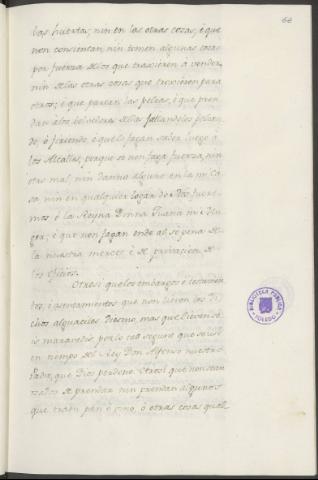 66
las huertas, nin en las otras cosas, è que
non consientan, nin tomen algunas cosas
por fuerza de los que traxieren à vender,
nin de las otras cosas que traxieren para
otros; è que partan las peleas, è que pren
dan à los bolvedores de ellas fallandolos pelean
do, ò firiendo, è que lo fagan saber luego à
los Alcalles, porque se non faga fuerza, nin
otro mal, nin danno alguno en la mi Ca
sa, nin en qualquier logar do Nos fuere
mos, ò la Reyna Donna Juana mi Mu
ger; è que non fagan ende al sò pena de
la nuestra merced è de privacion de
los oficios.
Otrosi que los embargos è
tos, è asentamientos que non lieven los di
chos alguaciles Diezmo, mas que lieven se
is maravedis, por lo
en tiempo del Rey Don Alfonso nuestro
Padre, que Dios perdone. Otrosi que non sean
osados de prendar nin prendan algunos
que trahen pan ò vino, ò otras cosas qual
BIBLIOTECA PUBLICA
TOLEDO